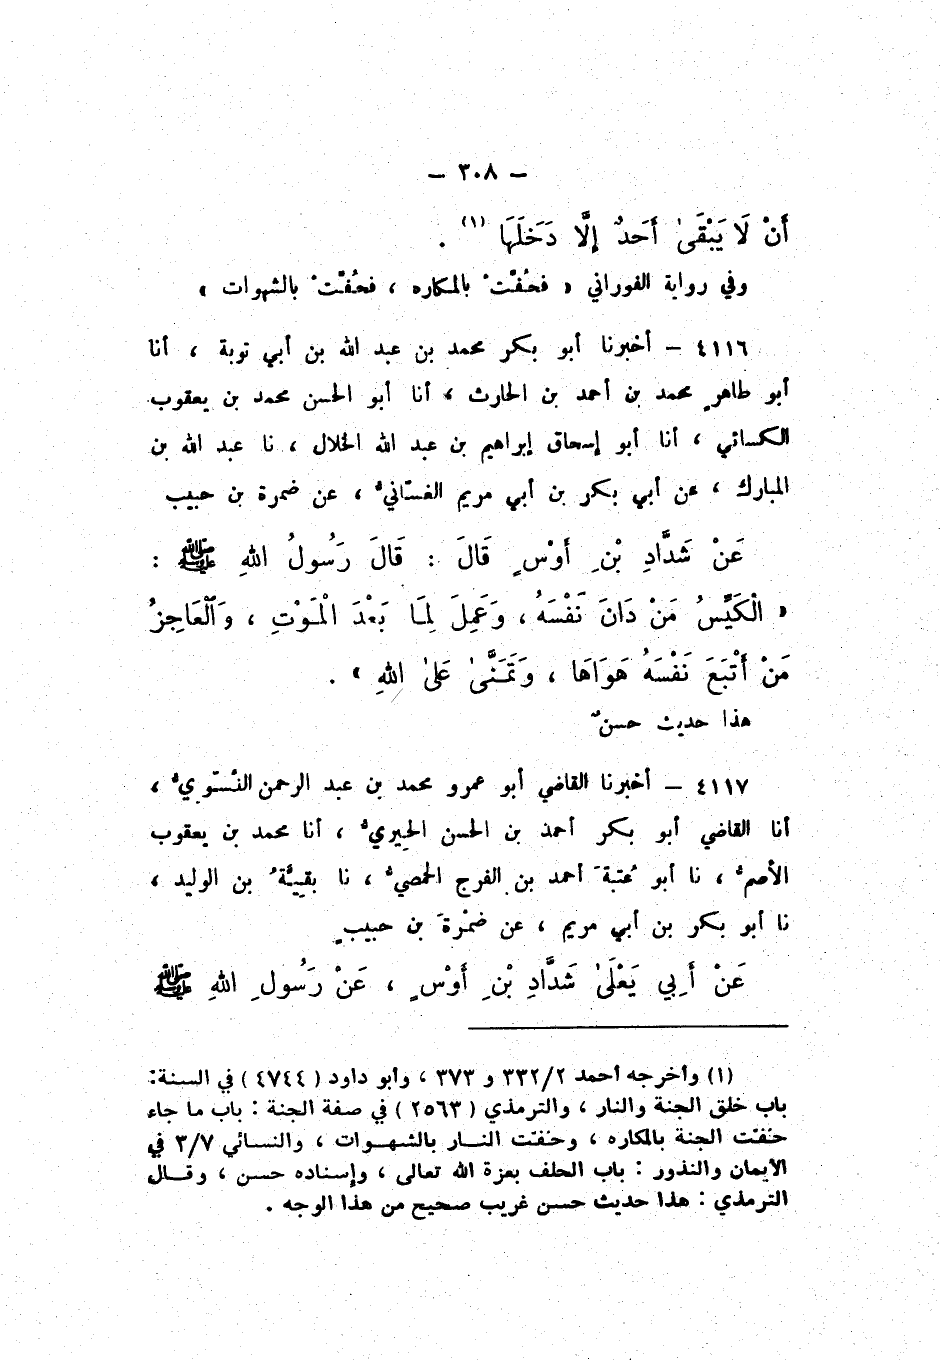 — ٣٠٨ —
أَنْ لَا يَبْقَىٰ أَحَدٌ إِلَّا دَخَلَهَا (١) .
وفي رواية الفوراني « فحُفَّتْ بالمكاره ، فحُفَّتْ بالشهوات »
٤١١٦ — أخبرنا أبو بكر محمد بن عبد الله بن أبي توبة ، أنا
أبو طاهرٍ محمد بن أحمد بن الحارث ، أنا أبو الحسن محمد بن يعقوب
الكسائي ، أنا أبو إسحاق إبراهيم بن عبد الله الخلال ، نا عبد الله بن
المبارك ، عن أبي بكر بن أبي مريم الغسّانيُّ ، عن ضمرة بن حبيب
عَنْ شَدَّادِ بْنِ أَوْسٍ قَالَ : قَالَ رَسُولُ اللهِ ﷺ :
« الْكَيِّسُ مَنْ دَانَ نَفْسَهُ ، وَعَمِلَ لِمَا بَعْدَ الْمَوْتِ ، وَالْعَاجِزُ
مَنْ أَتْبَعَ نَفْسَهُ هَوَاهَا ، وَتَمَنَّىٰ عَلَىٰ اللهِ » .
هذا حديث حسنٌ
٤١١٧ — أخبرنا القاضي أبو عمرو محمد بن عبد الرحمن النَّسَويُّ ،
أنا القاضي أبو بكر أحمد بن الحسن الحِيريُّ ، أنا محمد بن يعقوب
الأصمُّ ، نا أبو عُتبةَ أحمد بن الفرج الحمصيُّ ، نا بقيَّةُ بن الوليد ،
نا أبو بكر بن أبي مريم ، عن ضمْرةَ بن حبيبٍ
عَنْ أَبِي يَعْلَىٰ شَدَّادِ بْنِ أَوْسٍ ، عَنْ رَسُولِ اللهِ ﷺ
(١) وأخرجه أحمد ٣٣٢/٢ و ٣٧٣ ، وأبو داود ( ٤٧٤٤ ) في السنة:
باب خلق الجنة والنار ، والترمذي ( ٢٥٦٣ ) في صفة الجنة : باب ما جاء
حفت الجنة بالمكاره ، وحفت النار بالشهوات ، والنسائي ٣/٧ في
الأيمان والنذور : باب الحلف بعزة الله تعالى ، وإسناده حسن ، وقال
الترمذي : هذا حديث حسن غريب صحيح من هذا الوجه .